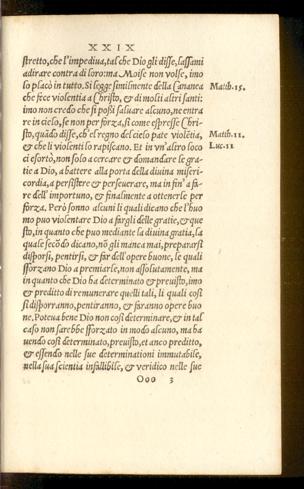 XXIX
stretto, che l'impediua, tal che Dio gli disse, lassami
adirare contra di loro: ma Moise non volse, imo
lo placò in tutto. Si legge similmente della Cananea Matth. 15.
che fece violentia a Christo, & di molti altri santi:
imo non credo che si possi saluare alcuno, ne entra
re in cielo, se non per forza, si come espresse Chri-
sto, quãdo disse, ch'el regno del cielo pate violẽtia, Matth. 11.
& che li violenti lo rapiscano. Et in vn'altro loco Luc. 11
ci esortò, non solo a cercare & domandare le gra-
tie a Dio, a battere alla porta della diuina miseri-
cordia, a persistere & perseuerare, ma in fin' a fa-
re dell'importuno, & finalmente a ottenerle per
forza. Però sonno alcuni li quali dicano che l'huo
mo puo violentare Dio a fargli delle gratie, & que
sto, in quanto che puo mediante la diuina gratia, la
quale secõdo dicano, nõ gli manca mai, prepararsi
disporsi, pentirsi, & far dell'opere buone, le quali
sforzano Dio a premiarle, non assolutamente, ma
in quanto che Dio ha determinato & preuisto, imo
& preditto di remunerare quelli tali, li quali cosi
si disporranno, pentiranno, & faranno opere buo
ne. Poteua bene Dio non cosi determinare, & in tal
caso non sarebbe sforzato in modo alcuno, ma ha
uendo cosi determinato, preuisto, et anco preditto,
& essendo nelle sue determinationi immutabile,
nella sua scientia infallibile, & veridico nelle sue
Ooo 3